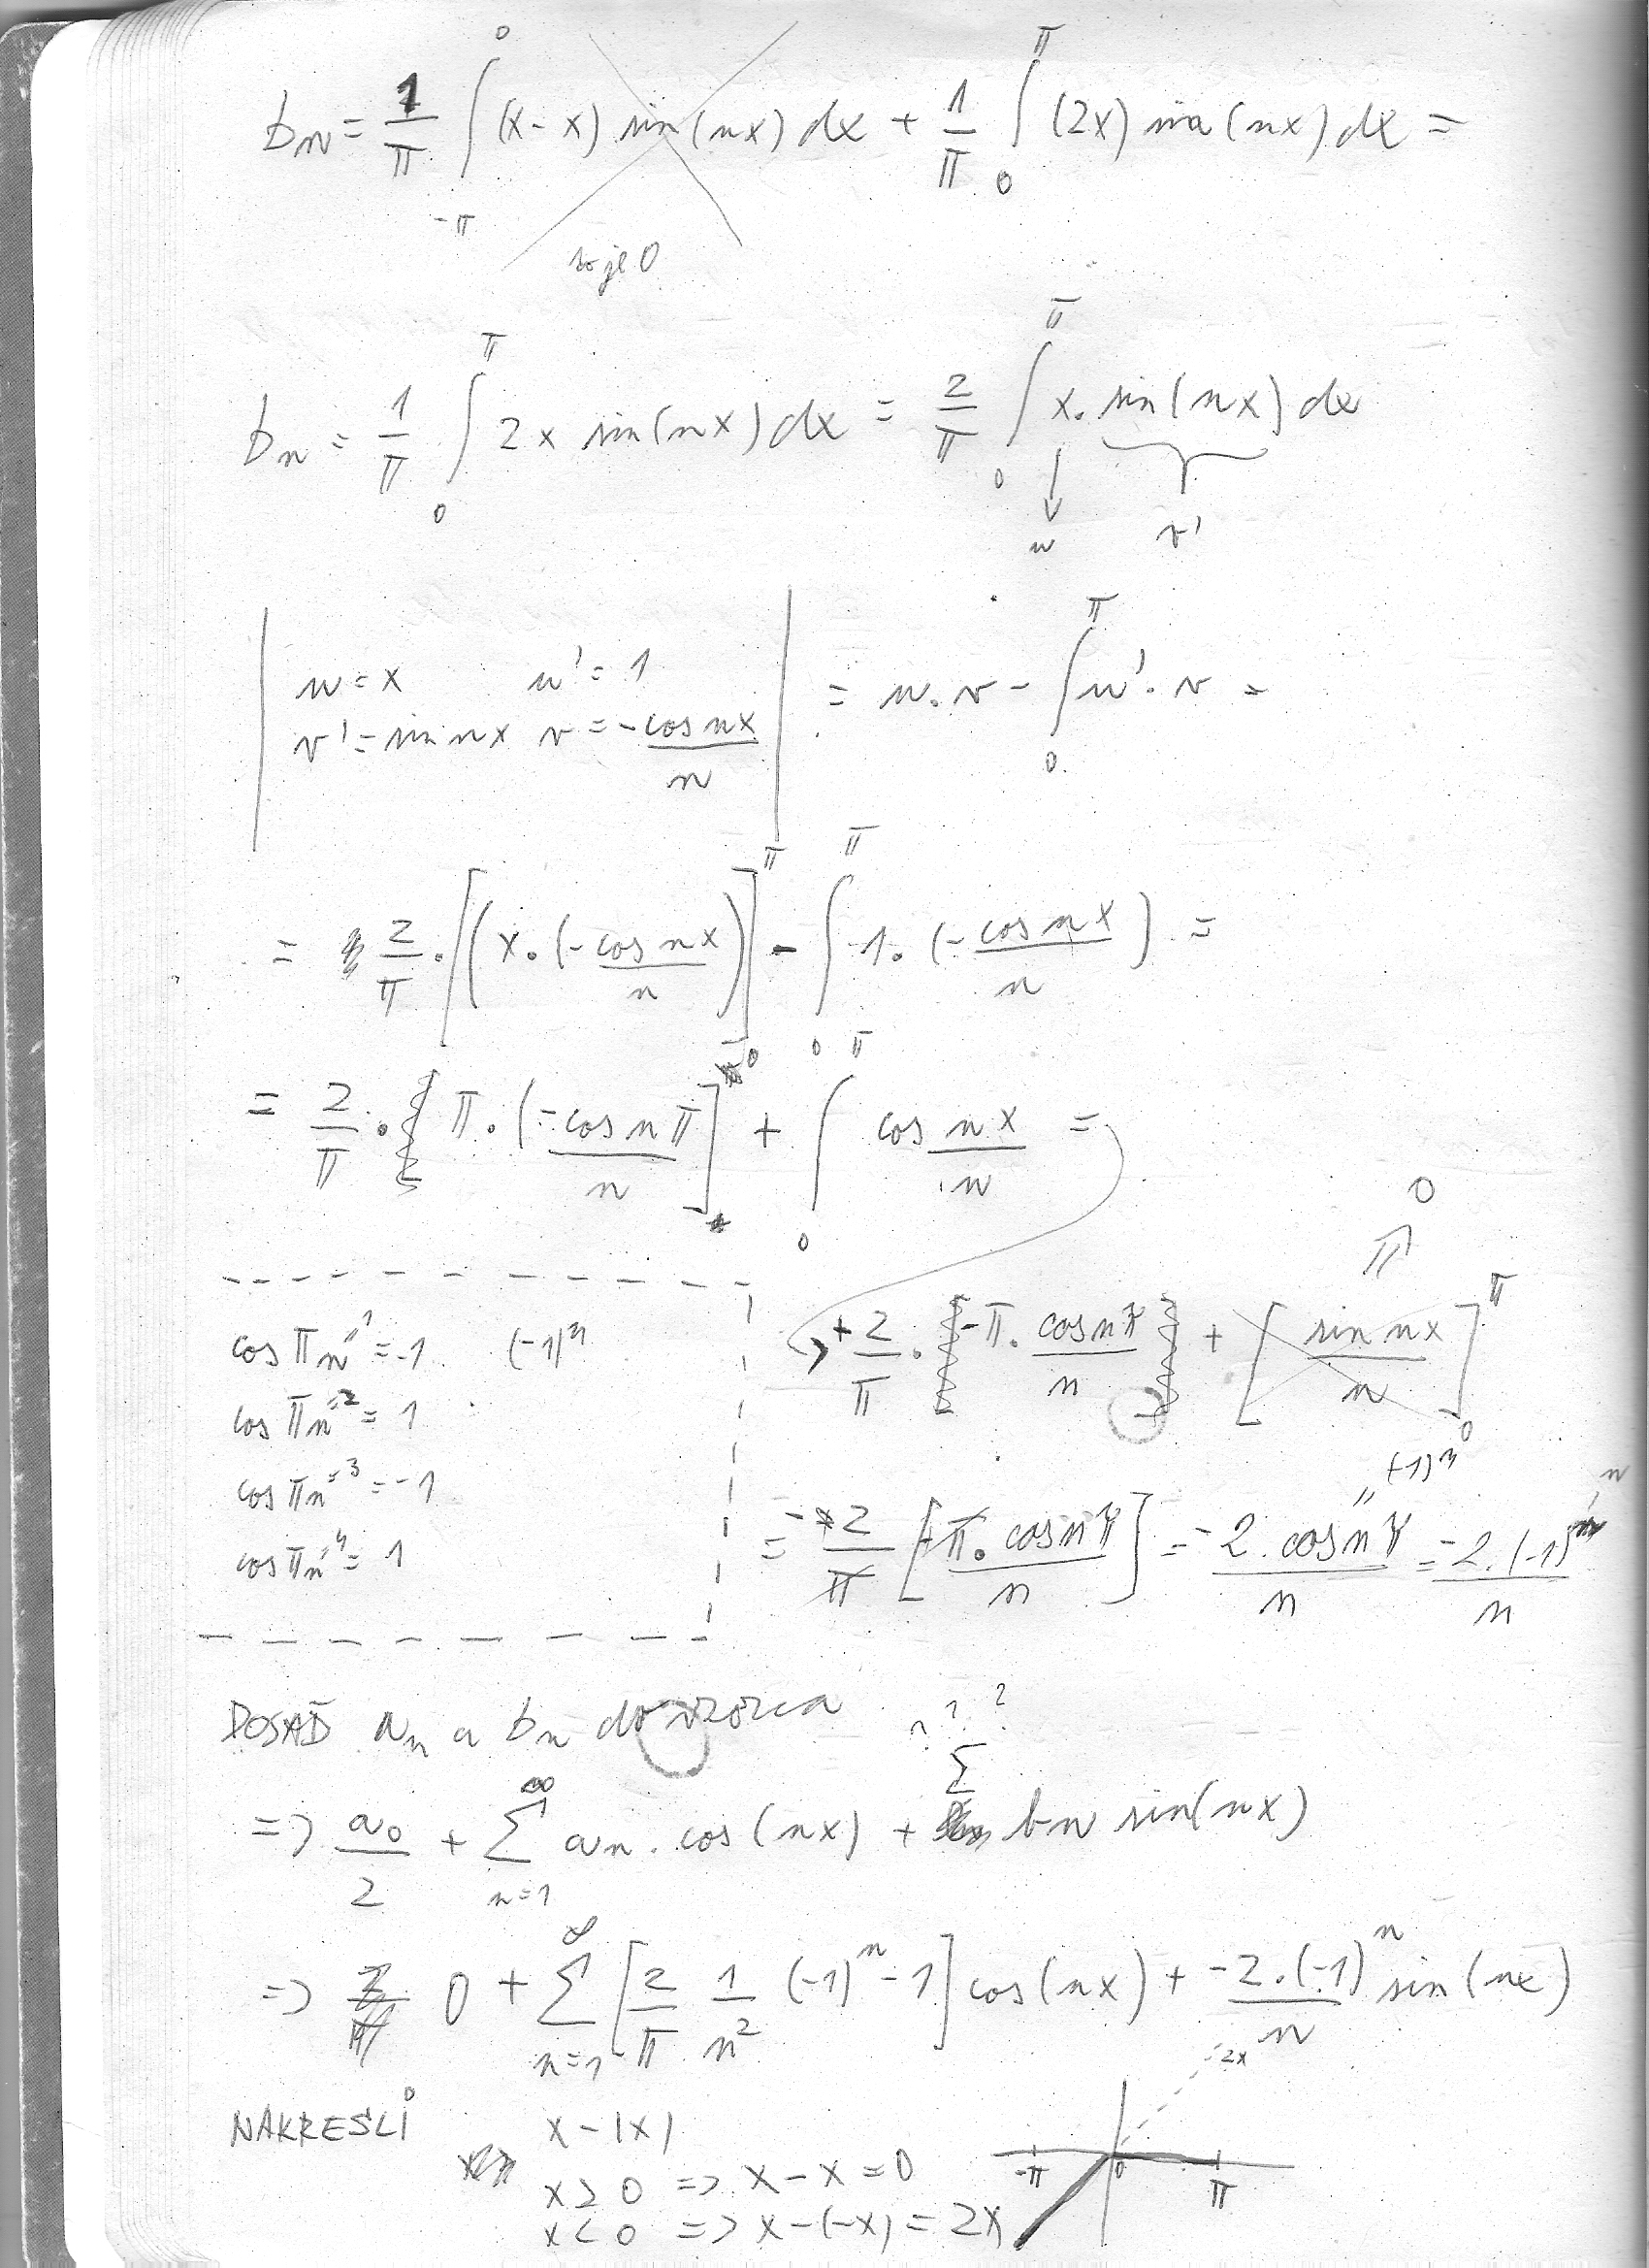 bn = 1/π ∫_{-π}^{0} (x-x) sin(nx) dx + 1/π ∫_{0}^{π} (2x) sin(nx) dx =
to je 0
bn = 1/π ∫_{0}^{π} 2x sin(nx) dx = 2/π ∫_{0}^{π} x. sin(nx) dx
u v'
u = x u' = 1 = u.v - ∫_{0}^{π} u'.v =
v' = sin nx v = -cos nx/n
= 2/π . [(x.(-cos nx/n)]_{0}^{π} - ∫_{0}^{π} 1.(-cos nx/n) =
= 2/π . π.(-cos nπ/n] + ∫_{0}^{π} cos nx/n =
0
cos πn=1 = -1 (-1)^n
+2/π . {-π. cos nπ/n} + [sin nx/n]_{0}^{π}
cos πn=2 = 1
cos πn=3 = -1
cos πn=4 = 1
(-1)^n
= -2/π [π. cos nπ/n] = -2. cos nπ/n = -2.(-1)^n/n
DOSAĎ an a bn do vzorca
? ? ?
=> a0/2 + Σ_{n=1}^{∞} an. cos(nx) + Σ bn sin(nx)
=> 0 + Σ_{n=1}^{∞} [2/π 1/n² (-1)^n - 1] cos(nx) + -2.(-1)^n/n sin(nx)
2x
NÁKRESLI x - |x|
-π 0 π
x ≥ 0 => x - x = 0
x < 0 => x - (-x) = 2x